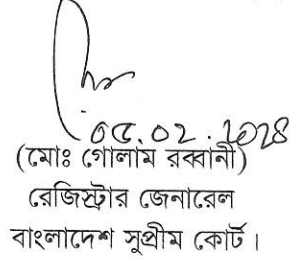 ০৫.০২.২০২৪
(মোঃ গোলাম রব্বানী)
রেজিস্ট্রার জেনারেল
বাংলাদেশ সুপ্রীম কোর্ট।